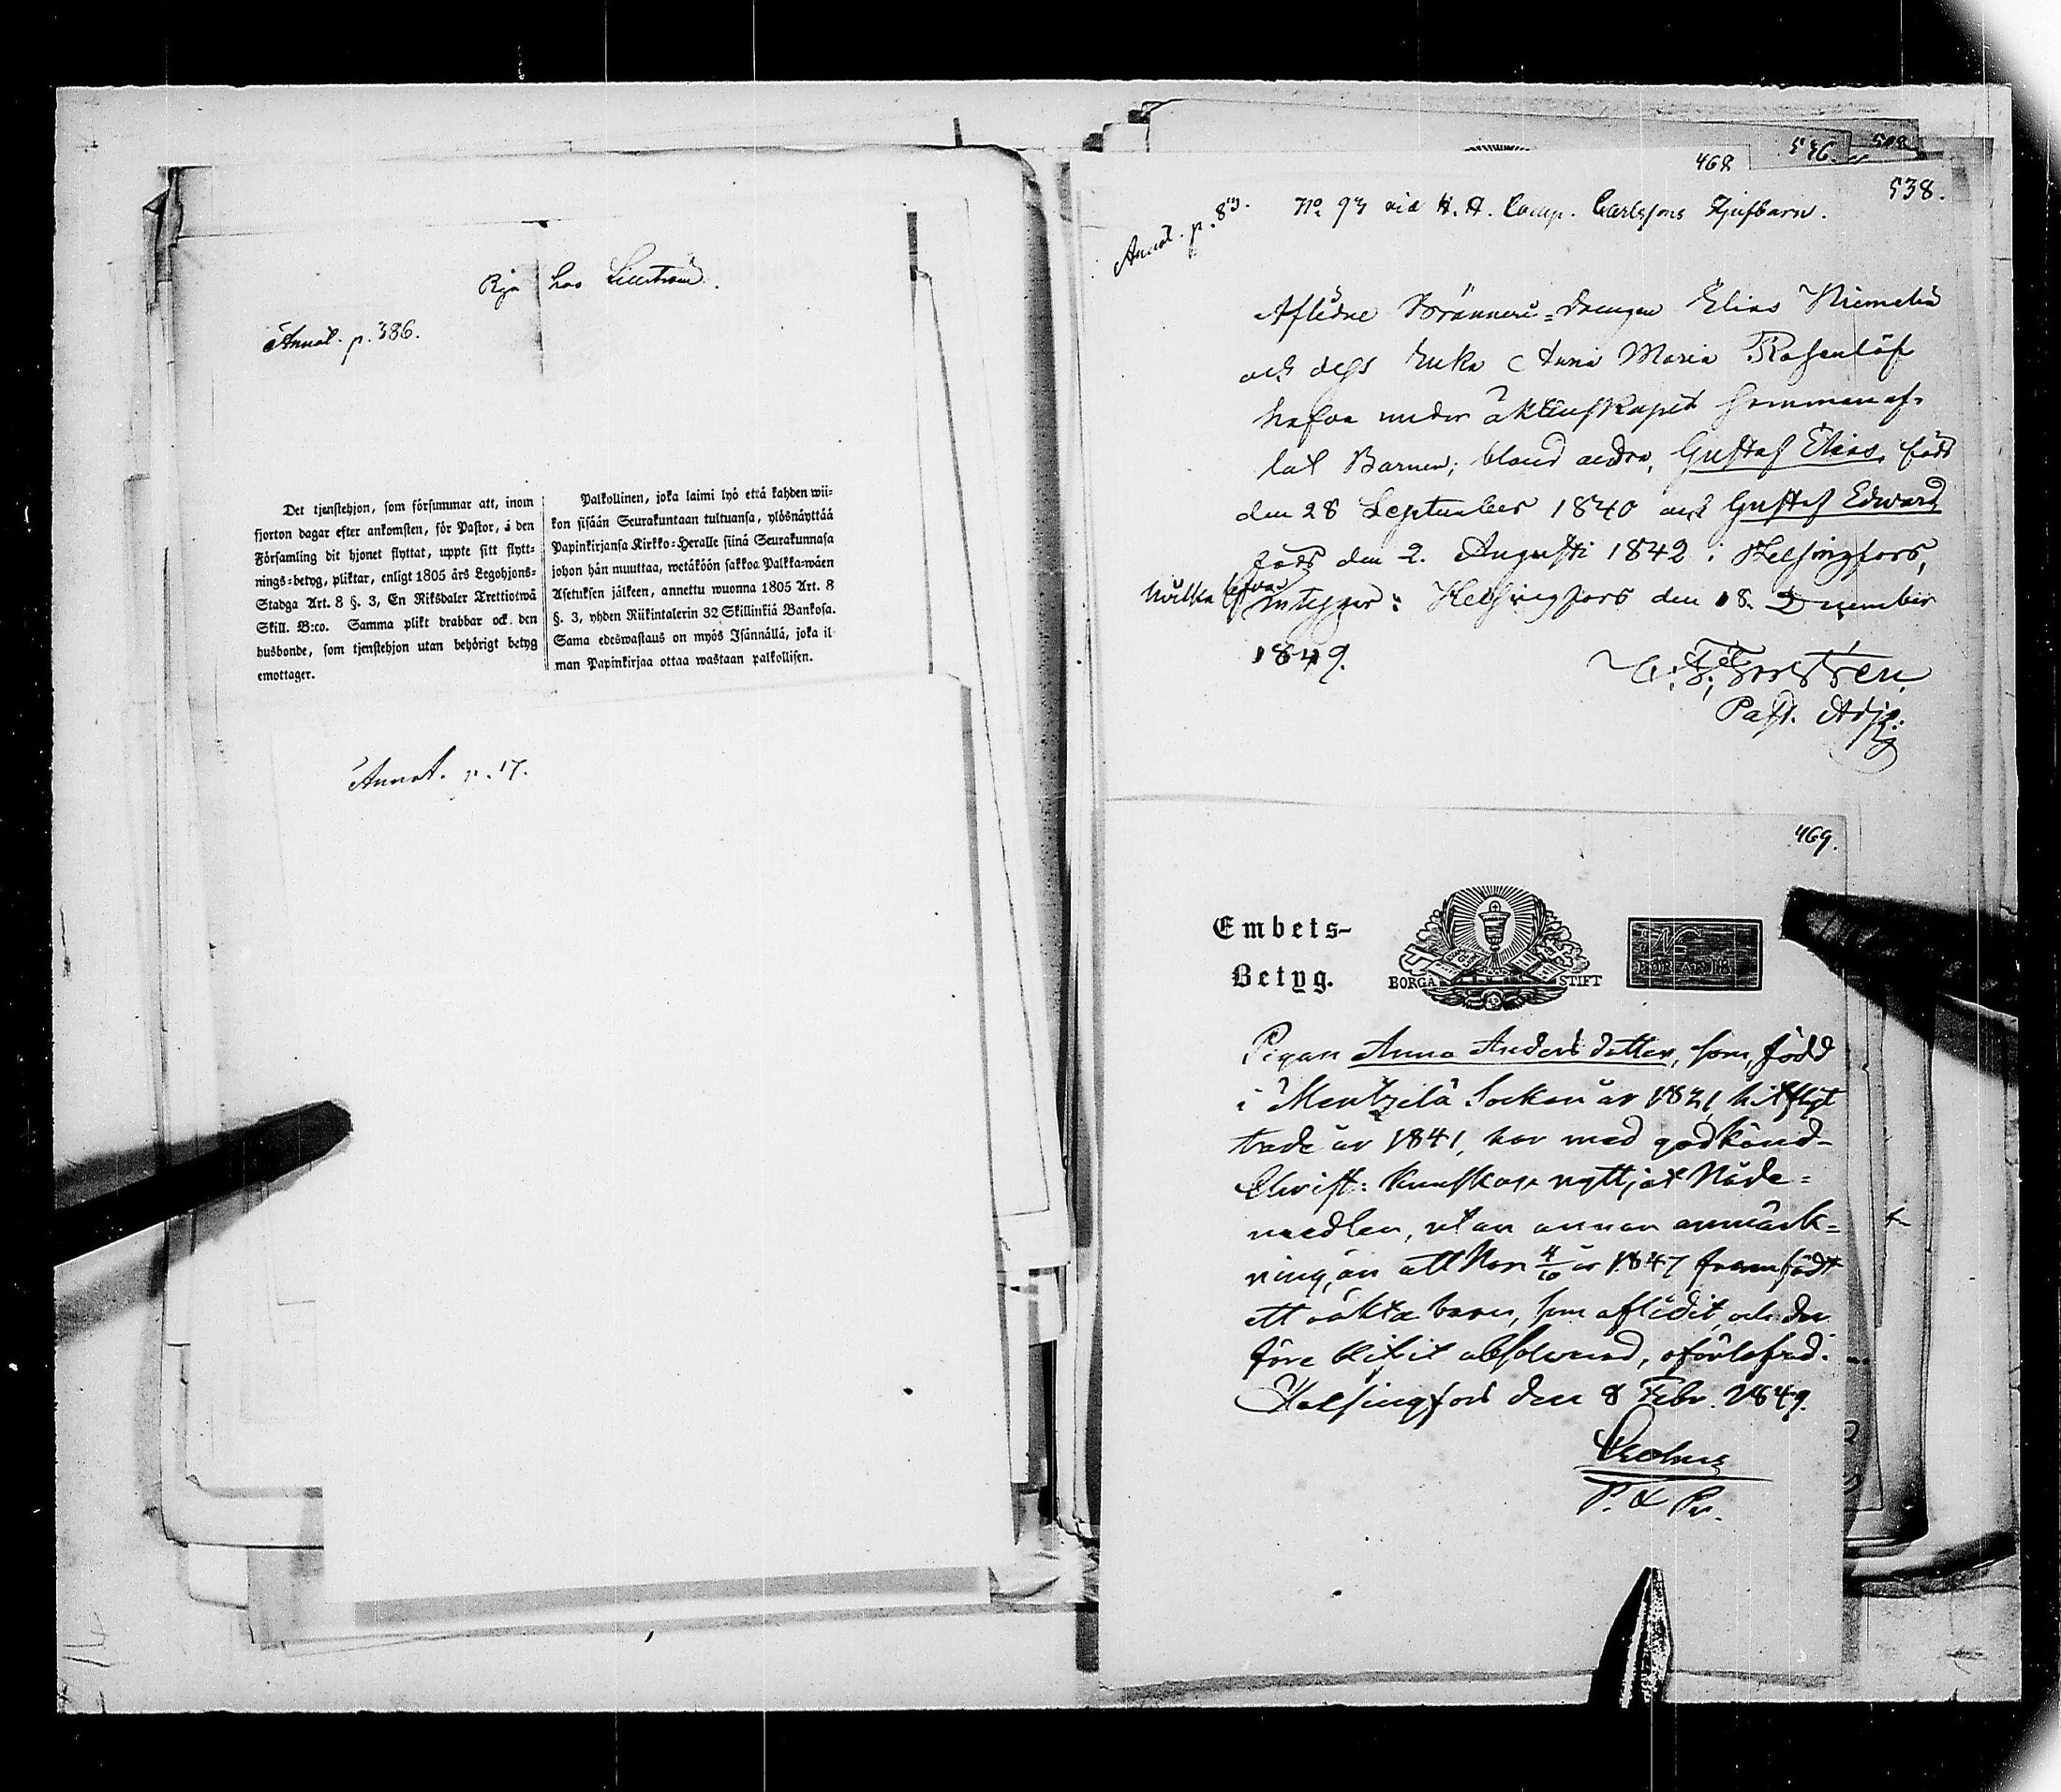 hos Lillström.
Annot. p. 386.
Det tjenstehjon, som försummar att, inom
fjorton dagar efter ankomsten, för Pastor, i den
Församling dit hjonet flyttat, uppte sitt flytt-
nings-betyg, pliktar, enligt 1805 års Legohjons-
Stadga Art. 8 §. 3, En Riksdaler Trettiotwå
Skill. B:co. Samma plikt drabbar ock den
husbonde, som tjenstehjon utan behörigt betyg
emottager.
Palkollinen, joka laimi lyö että kahden wii-
kon sisään Seurakuntaan tultuansa, ylösnäyttää
Papinkirjansa Kirkko-Heralle siinä Seurakunnasa
johon hän muuttaa, wetäköön sakkoa Palkka-wäen
Asetuksen jälkeen, annettu wuonna 1805 Art. 8
§. 3, yhden Riikintalerin 32 Skillinkiä Bankosa.
Sama edeswastaus on myös Isännällä, joka il
man Papinkirjaa ottaa wastaan palkollisen.
Annot. p. 17.
468
536.
538.
Annot. p. 83.
No 93 vid Comp. Carlssons
Aflidne Bränneri-Drengen Elias
och dess Enka Anna Maria Rosenlöf
hafva under äktenskapet sammanaf-
lat Barnen; bland andra, Gustaf Elias, född
den 28 September 1840 och Gustaf Edvard,
född den 2. Augusti 1842 i Helsingfors,
hvilka
intygar: Helsingfors den 18. December
1849.
Past. Adj.
469.
Embets-
Betyg.
BORGÅ STIFT
Pigan Anna Andersdotter, som, född
i Mentzelä Socken år 1821, hitflyt
tade år 1841, har med godkänd
Christ: kunskap nyttjat Nåde-
medlen, utan annan anmärk-
ning, än att hon 4/10 år 1847 framfödt
ett oäkta barn, som aflidit, och der
före blifvit absolverad, oförlofvad.
Helsingfors den 8 Febr. 1849.